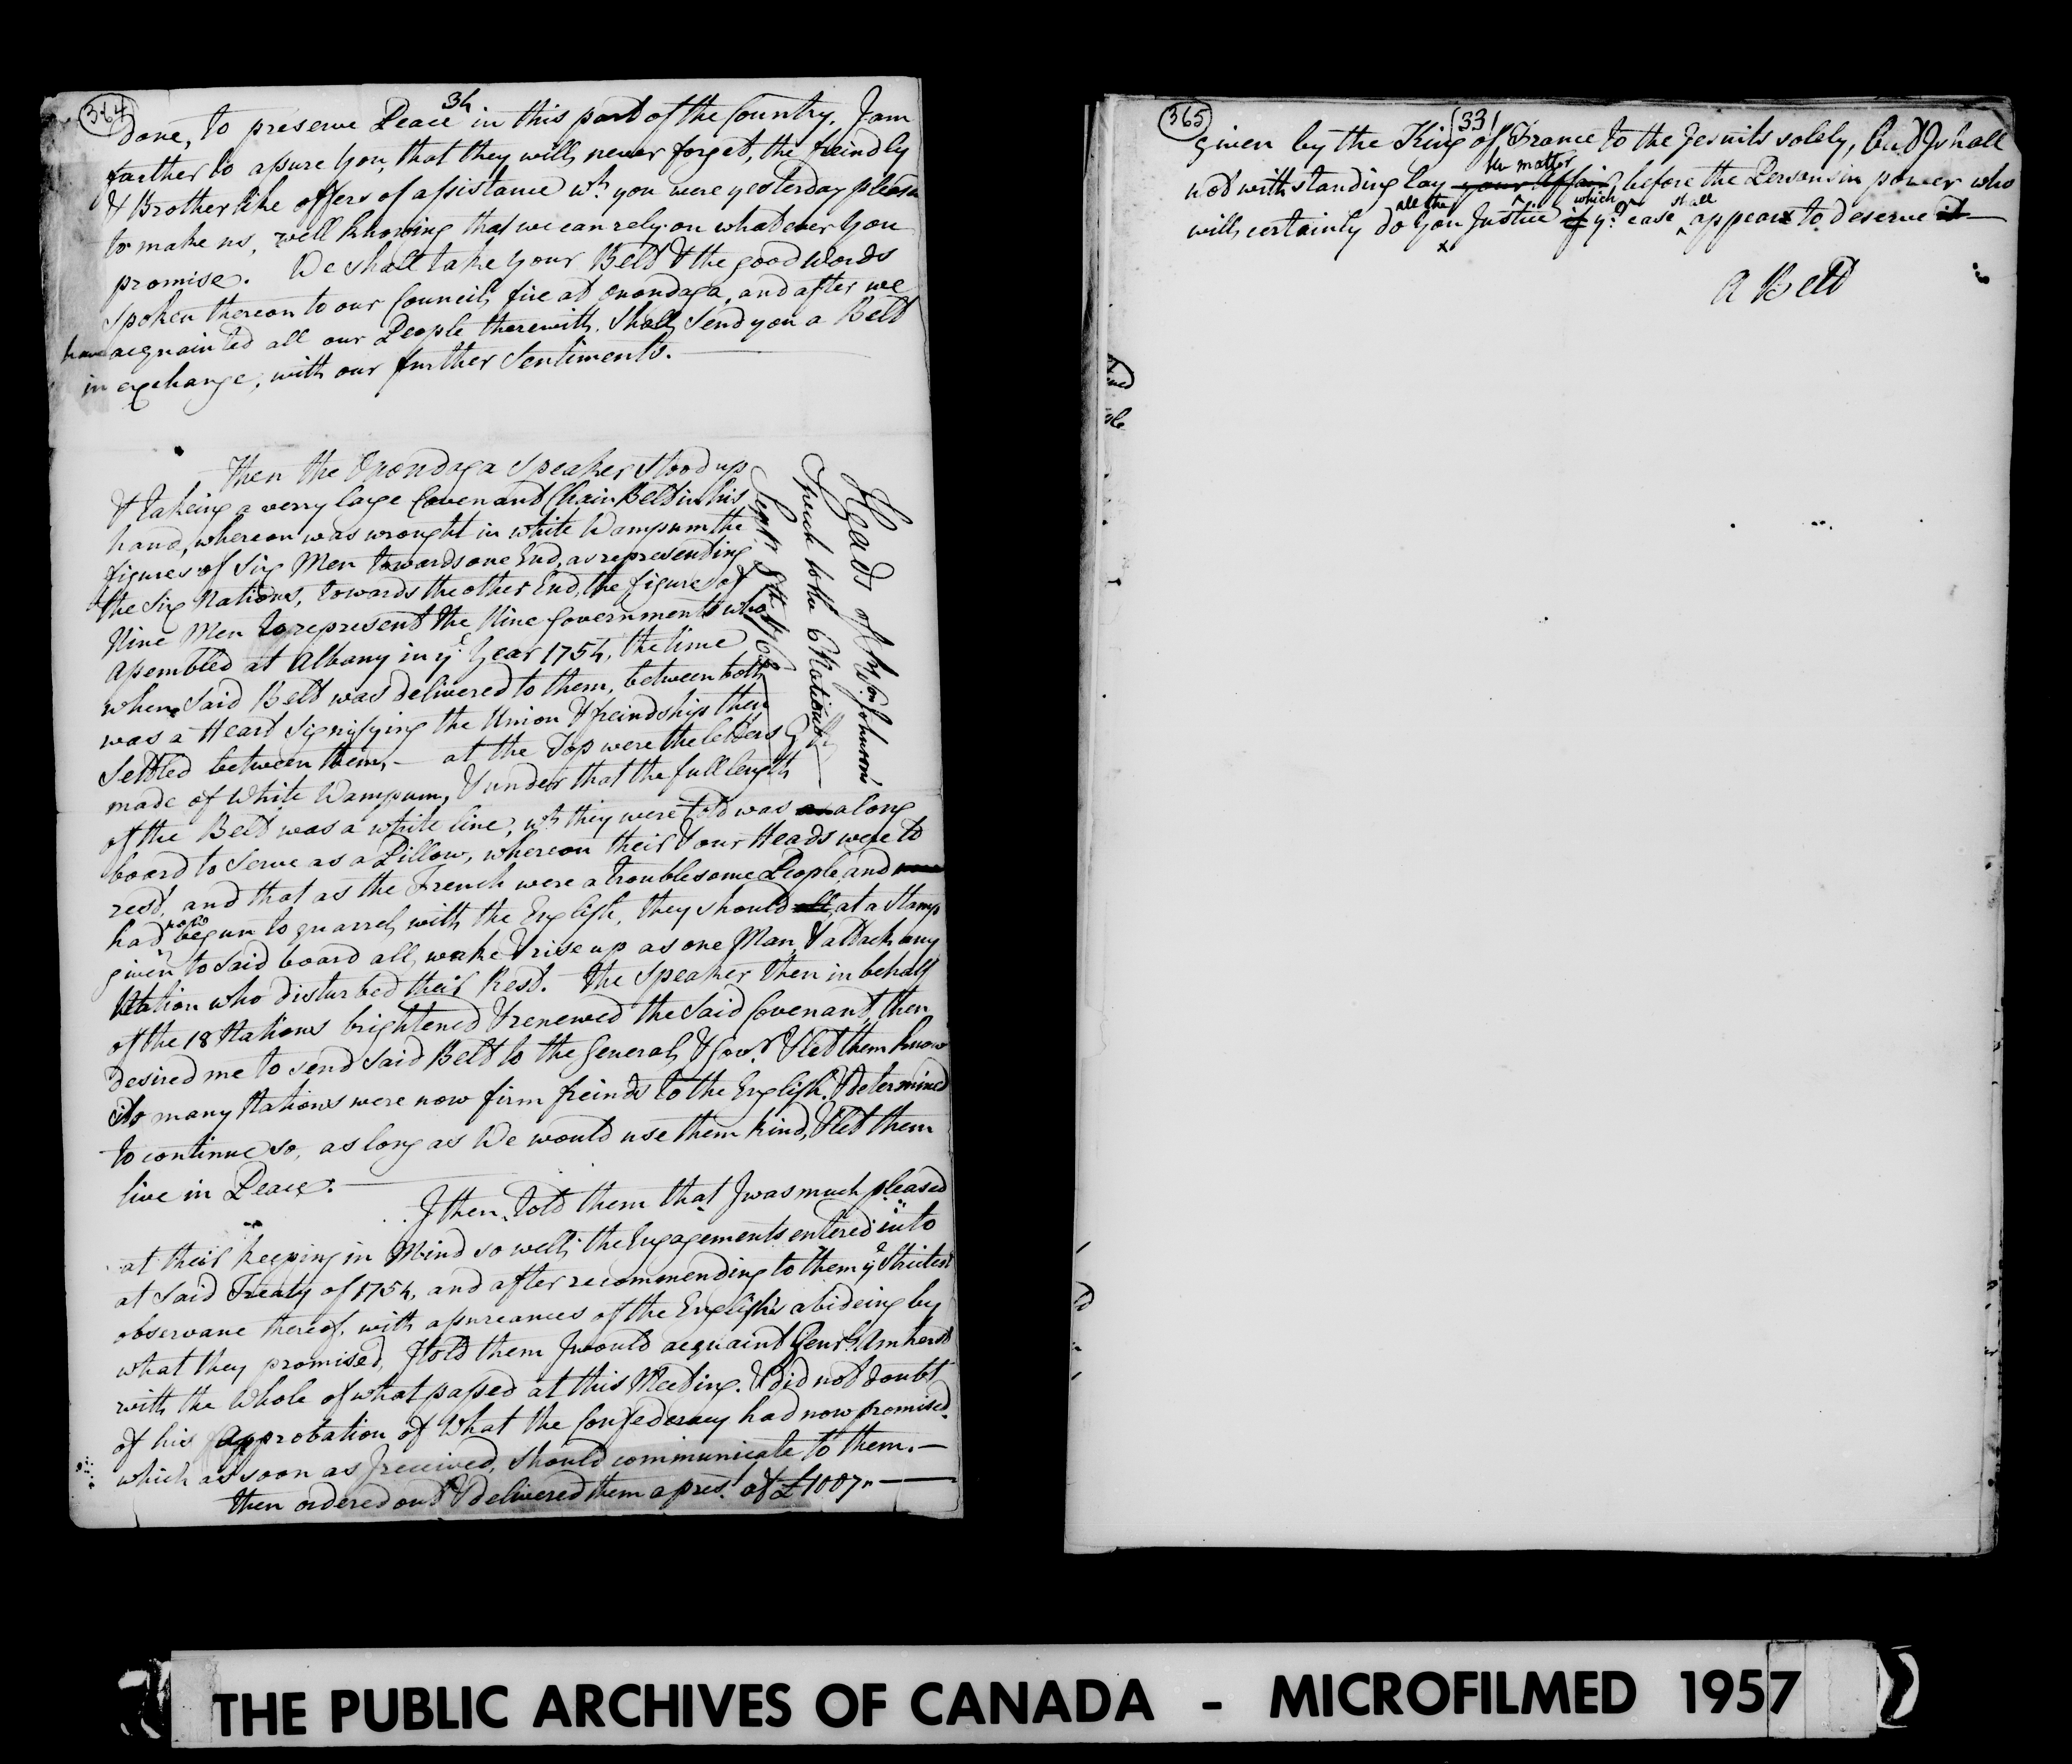 364
34
done, to preserve Peace in this part of the Country. I am
farther to assure you, that they will never forget, the freindly
& Brotherlike offers of assistance wh. you were yesterday pleasd
to make us, well knowing that we can rely on whatever you
promise. We shall take your Belt & the good words
spoken thereon to our Council fire at Onondaga, and after we
have acquainted all our People therewith. Shall send you a Belt
in exchange, with our further Sentiments.
Then the Onondaga Speaker stood up
& takeing a verry large Covenant Chain Belt in his
hand, whereon was wrought in white Wampum the
figures of Six Men towards one End, as representing
the Six Nations, towards the other End, the figures of
Nine Men to represent the Nine Governments who
assembled at Albany in ye. Year 1754, the time
when said Belt was delivered to them, between both
was a Heart signifying the Union & freindship then
Settled between them, - at the Top were the letters G R
made of White Wampum, & under that the full length
of the Belt was a white line, wh. they were told was a long
board to Serve as a Pillow, whereon their & our Heads were to
rest, and that as the French were a troublesome People, and
had now begun to quarrel with the English, they should all, at a stamp
given to said board all, wake & rise up as one Man, & attack any
Nation who disturbed their Rest. The Speaker then in behalf
of the 18 Nations brightened & renewed the said Covenant, then
desired me to send said Belt to the General & Govr. & let them know
so many Nations were now firm freinds to the English, & determined
to continue so, as long as We would use them kind, & let them
live in Peace.
I then told them that I was much pleased
at their keeping in Mind so well, the Engagements entered into
at said Treaty of 1754, and after recommending to them ye Strictest
observane thereof, with assureances of the English's abideing by
what they promised, I told them I would acquaint Genrl. Amherst
with the Whole of what passed at this Meeting. & did not doubt
of his Approbation of What the Confederacy had now promised.
which as soon as I received, should communicate to them. -
then ordered out & delivered them a prest. of £1007 "
Heads of Sr. Wm. Johnson's
Speech to the Nations
Septr. 8th. 1763
365
(33)
given by the King of France to the Jesuits solely, but I shall
notwithstanding lay your Affair, the matter before the Persons in power who
will certainly do you all the Justice if which ye. case shall appears to deserve it
A Belt
THE PUBLIC ARCHIVES OF CANADA - MICROFILMED 1957